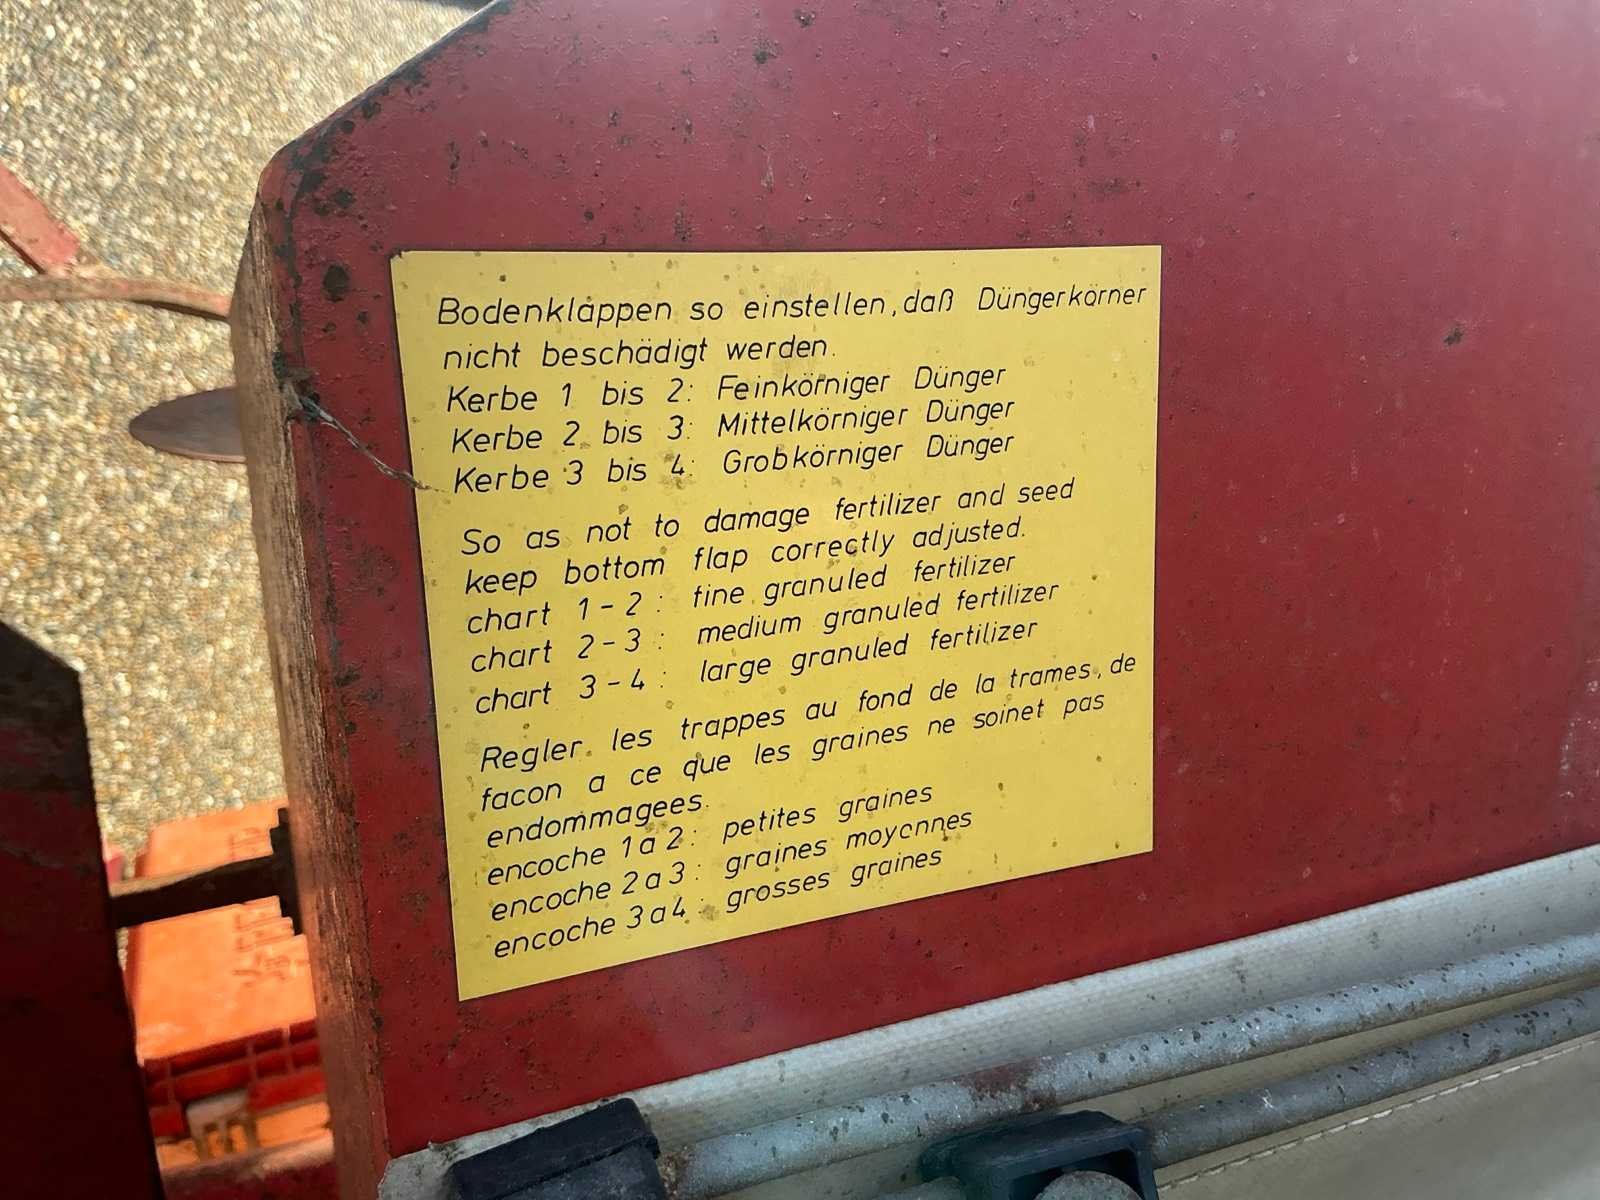 Bodenklappen so einstellen, daß Düngerkörner
nicht beschädigt werden.
Kerbe 1 bis 2: Feinkörniger Dünger
Kerbe 2 bis 3: Mittelkörniger Dünger
Kerbe 3 bis 4: Grobkörniger Dünger
So as not to damage fertilizer and seed
keep bottom flap correctly adjusted.
chart 1-2: fine granuled fertilizer
chart 2-3: medium granuled fertilizer
chart 3-4: large granuled fertilizer
Regler les trappes au fond de la trames, de
facon a ce que les graines ne soinet pas
endommagees.
encoche 1a2: petites graines
encoche 2a3: graines moyennes
encoche 3a4: grosses graines